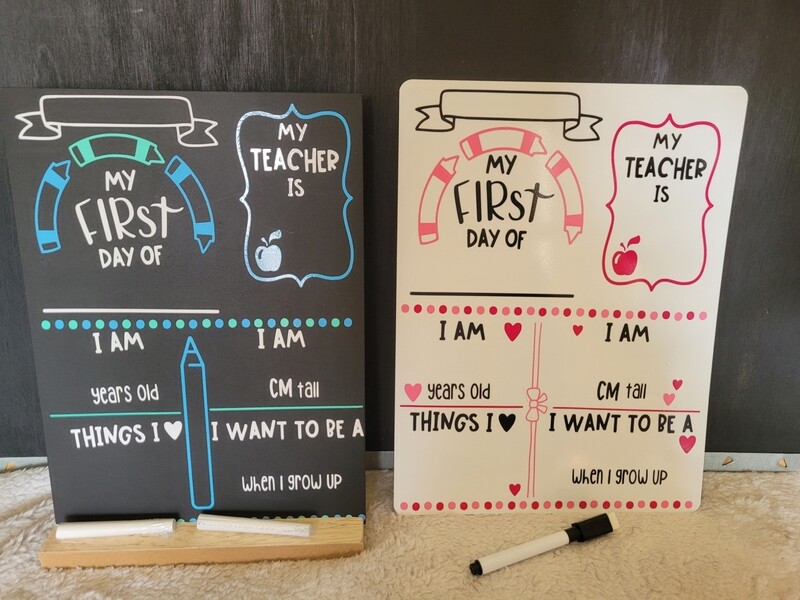 MY
FIRST
DAY OF
MY
TEACHER
IS
I AM
years old
I AM
CM tall
THINGS I
I WANT TO BE A
when I grow up
MY
FIRST
DAY OF
MY
TEACHER
IS
I AM
years old
I AM
CM tall
THINGS I
I WANT TO BE A
when I grow up